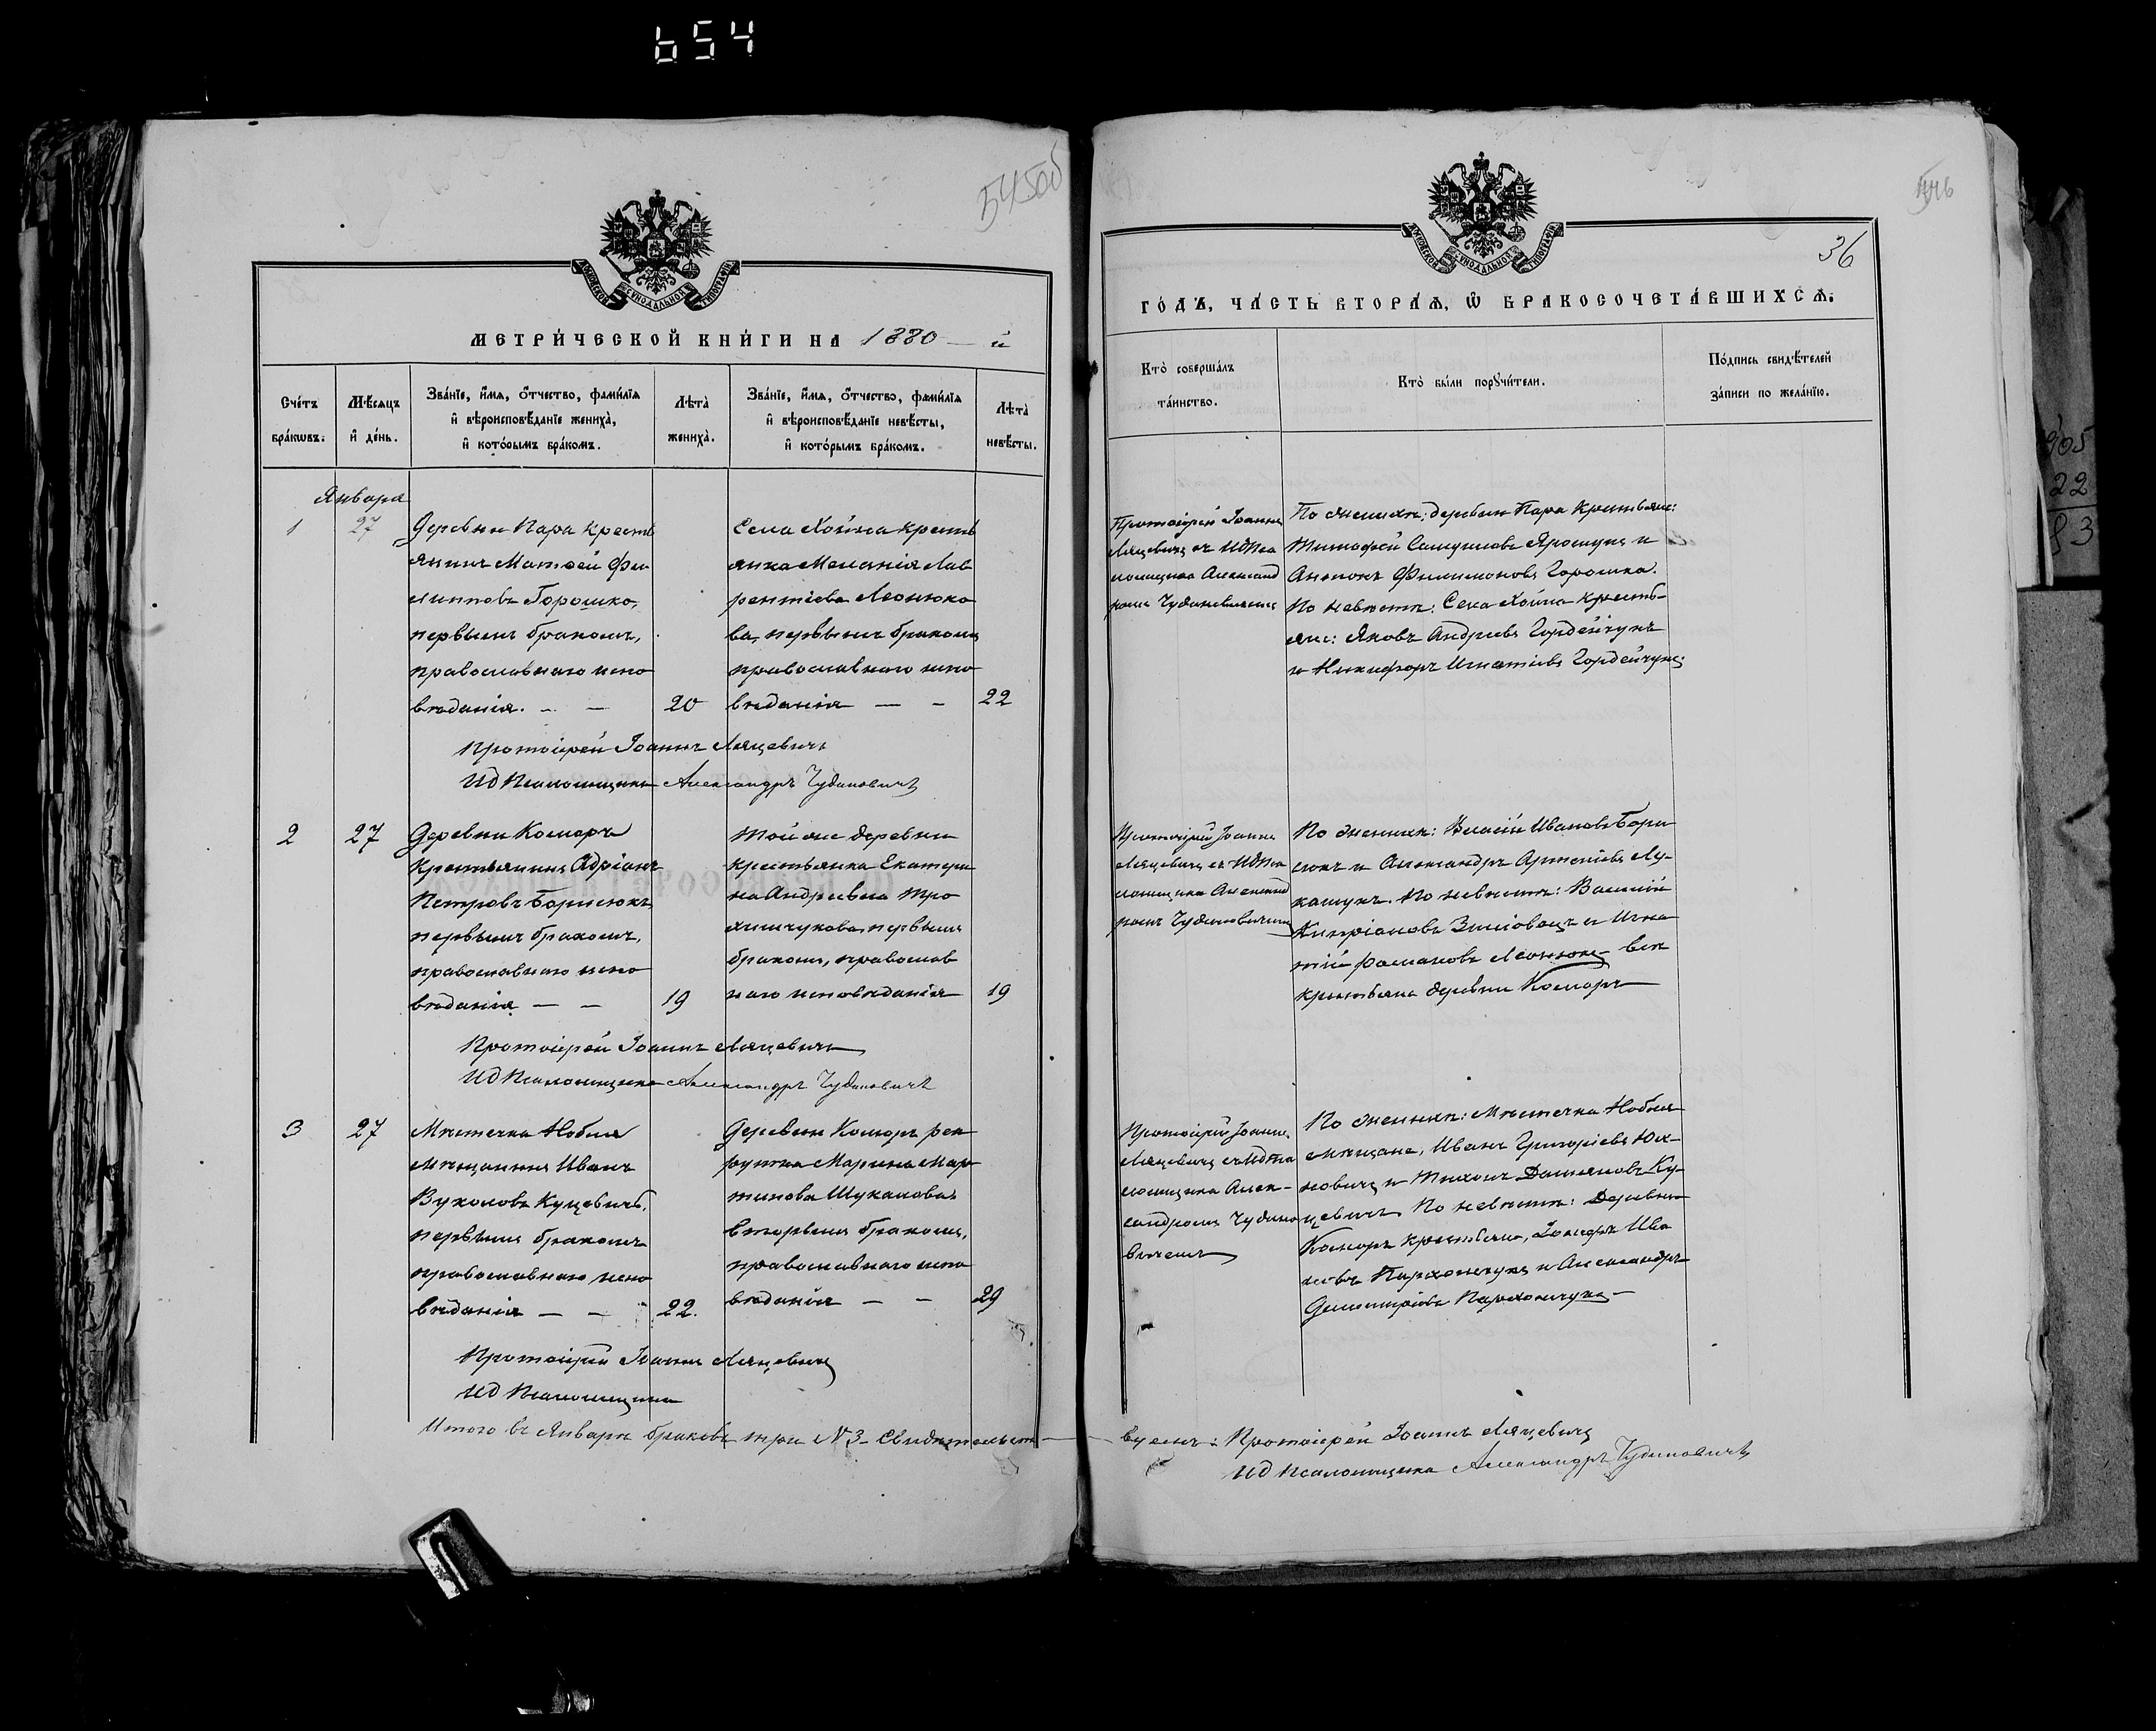 654
545об
МОСКОВСКОЙ СѴНОДАЛЬНОЙ ТИПОГРАФІИ
МЕТРИ́ЧЕСКОЙ КНИ́ГИ НА 1880 — й
Сче́тъ бра́кѡвъ.
Мѣ́сяцъ и҆ де́нь.
Зва́нїе, и҆́мѧ, ѻ҆́тчество, фами́лїѧ и҆ вѣроисповѣ́данїе жениха̀, и҆ кото́рымъ бра́комъ.
Лѣта̀ жениха̀.
Зва́нїе, и҆́мѧ, ѻ҆́тчество, фами́лїѧ и҆ вѣроисповѣ́данїе невѣ́сты, и҆ кото́рымъ бра́комъ.
Лѣта̀ невѣ́сты.
Января
1
27
Деревни Пара кресть
янинъ Матѳей Фи
липповъ Горошко,
первымъ бракомъ,
православнаго испо
вѣданія. — —
20
Села Хойна кресть
янка Меланія Лав
рентіева Леонюко
ва, первымъ бракомъ
православнаго испо
вѣданія — —
22
Протоіерей Іоаннъ Ляцевичъ
ИД Псаломщика Александръ Чудиновичъ
2
27
Деревни Коморъ
Крестьянинъ Адріанъ
Петровъ Борисюкъ,
первымъ бракомъ,
православнаго испо
вѣданія — —
19
Той же деревни
крестьянка Екатери
на Андреева Тро
химчукова, первымъ
бракомъ, православ
наго исповѣданія
19
Протоіерей Іоаннъ Ляцевичъ
ИД Псаломщика Александръ Чудиновичъ
3
27
Мѣстечка Нобля
мѣщанинъ Иванъ
Вуколовъ Куцевичъ,
первымъ бракомъ
православнаго испо
вѣданія — —
22.
Деревни Коморъ рек
рутка Марина Мар
тинова Шукалова
вторымъ бракомъ,
православнаго испо
вѣданія — —
29
Протоіерей Іоаннъ Ляцевичъ
ИД Псаломщика
Итого въ Январѣ браковъ три № 3 Свидѣтельст
546
36
МОСКОВСКОЙ СѴНОДАЛЬНОЙ ТИПОГРАФІИ
ГО́ДЪ, ЧА́СТЬ ВТОРА́Ѧ, Ѽ БРАКОСОЧЕТА́ВШИХСѦ.
Кто̀ соверша́лъ та́инство.
Кто̀ бы́ли порꙋчи́тели.
По́дпись свидѣ́телей за́писи по жела́нїю.
Протоіерей Іоаннъ
Ляцевичъ съ ИД Пса
ломщика Александ
ромъ Чудиновичемъ
По женихѣ: деревни Пара Крестьяне:
Тимофей Самуиловъ Ярошукъ и
Антонъ Филимоновъ Горошко.
По невѣстѣ: Села Хойна Кресть-
яне: Яковъ Андреевъ Гордейчукъ
и Никифоръ Игнатіевъ Гордейчукъ
Протоіерей Іоаннъ
Ляцевичъ съ ИД Пса
ломщика Александ
ромъ Чудиновичемъ
По женихѣ: Власій Ивановъ Бори
сюкъ и Александръ Артеміевъ Лу-
кашукъ. По невѣстѣ: Василій
Кипріановъ и Игна
тій Романовъ Леонюкъ всѣ
крестьяне деревни Коморъ
Протоіерей Іоаннъ
Ляцевичъ съ ИД Пса
ломщика Алек-
сандромъ Чудино
вичемъ
По женихѣ: Мѣстечка Нобля
мѣщане, Иванъ Григоріевъ Юх-
новичъ и Тихонъ Даміановъ Ку-
цевичъ По невѣстѣ: Деревни
Коморъ крестьяне, Іосифъ Ива
новъ Пархомчукъ и Александръ
Димитріевъ Пархомчукъ
вуемъ: Протоіерей Іоаннъ Ляцевичъ
ИД Псаломщика Александръ Чудиновичъ